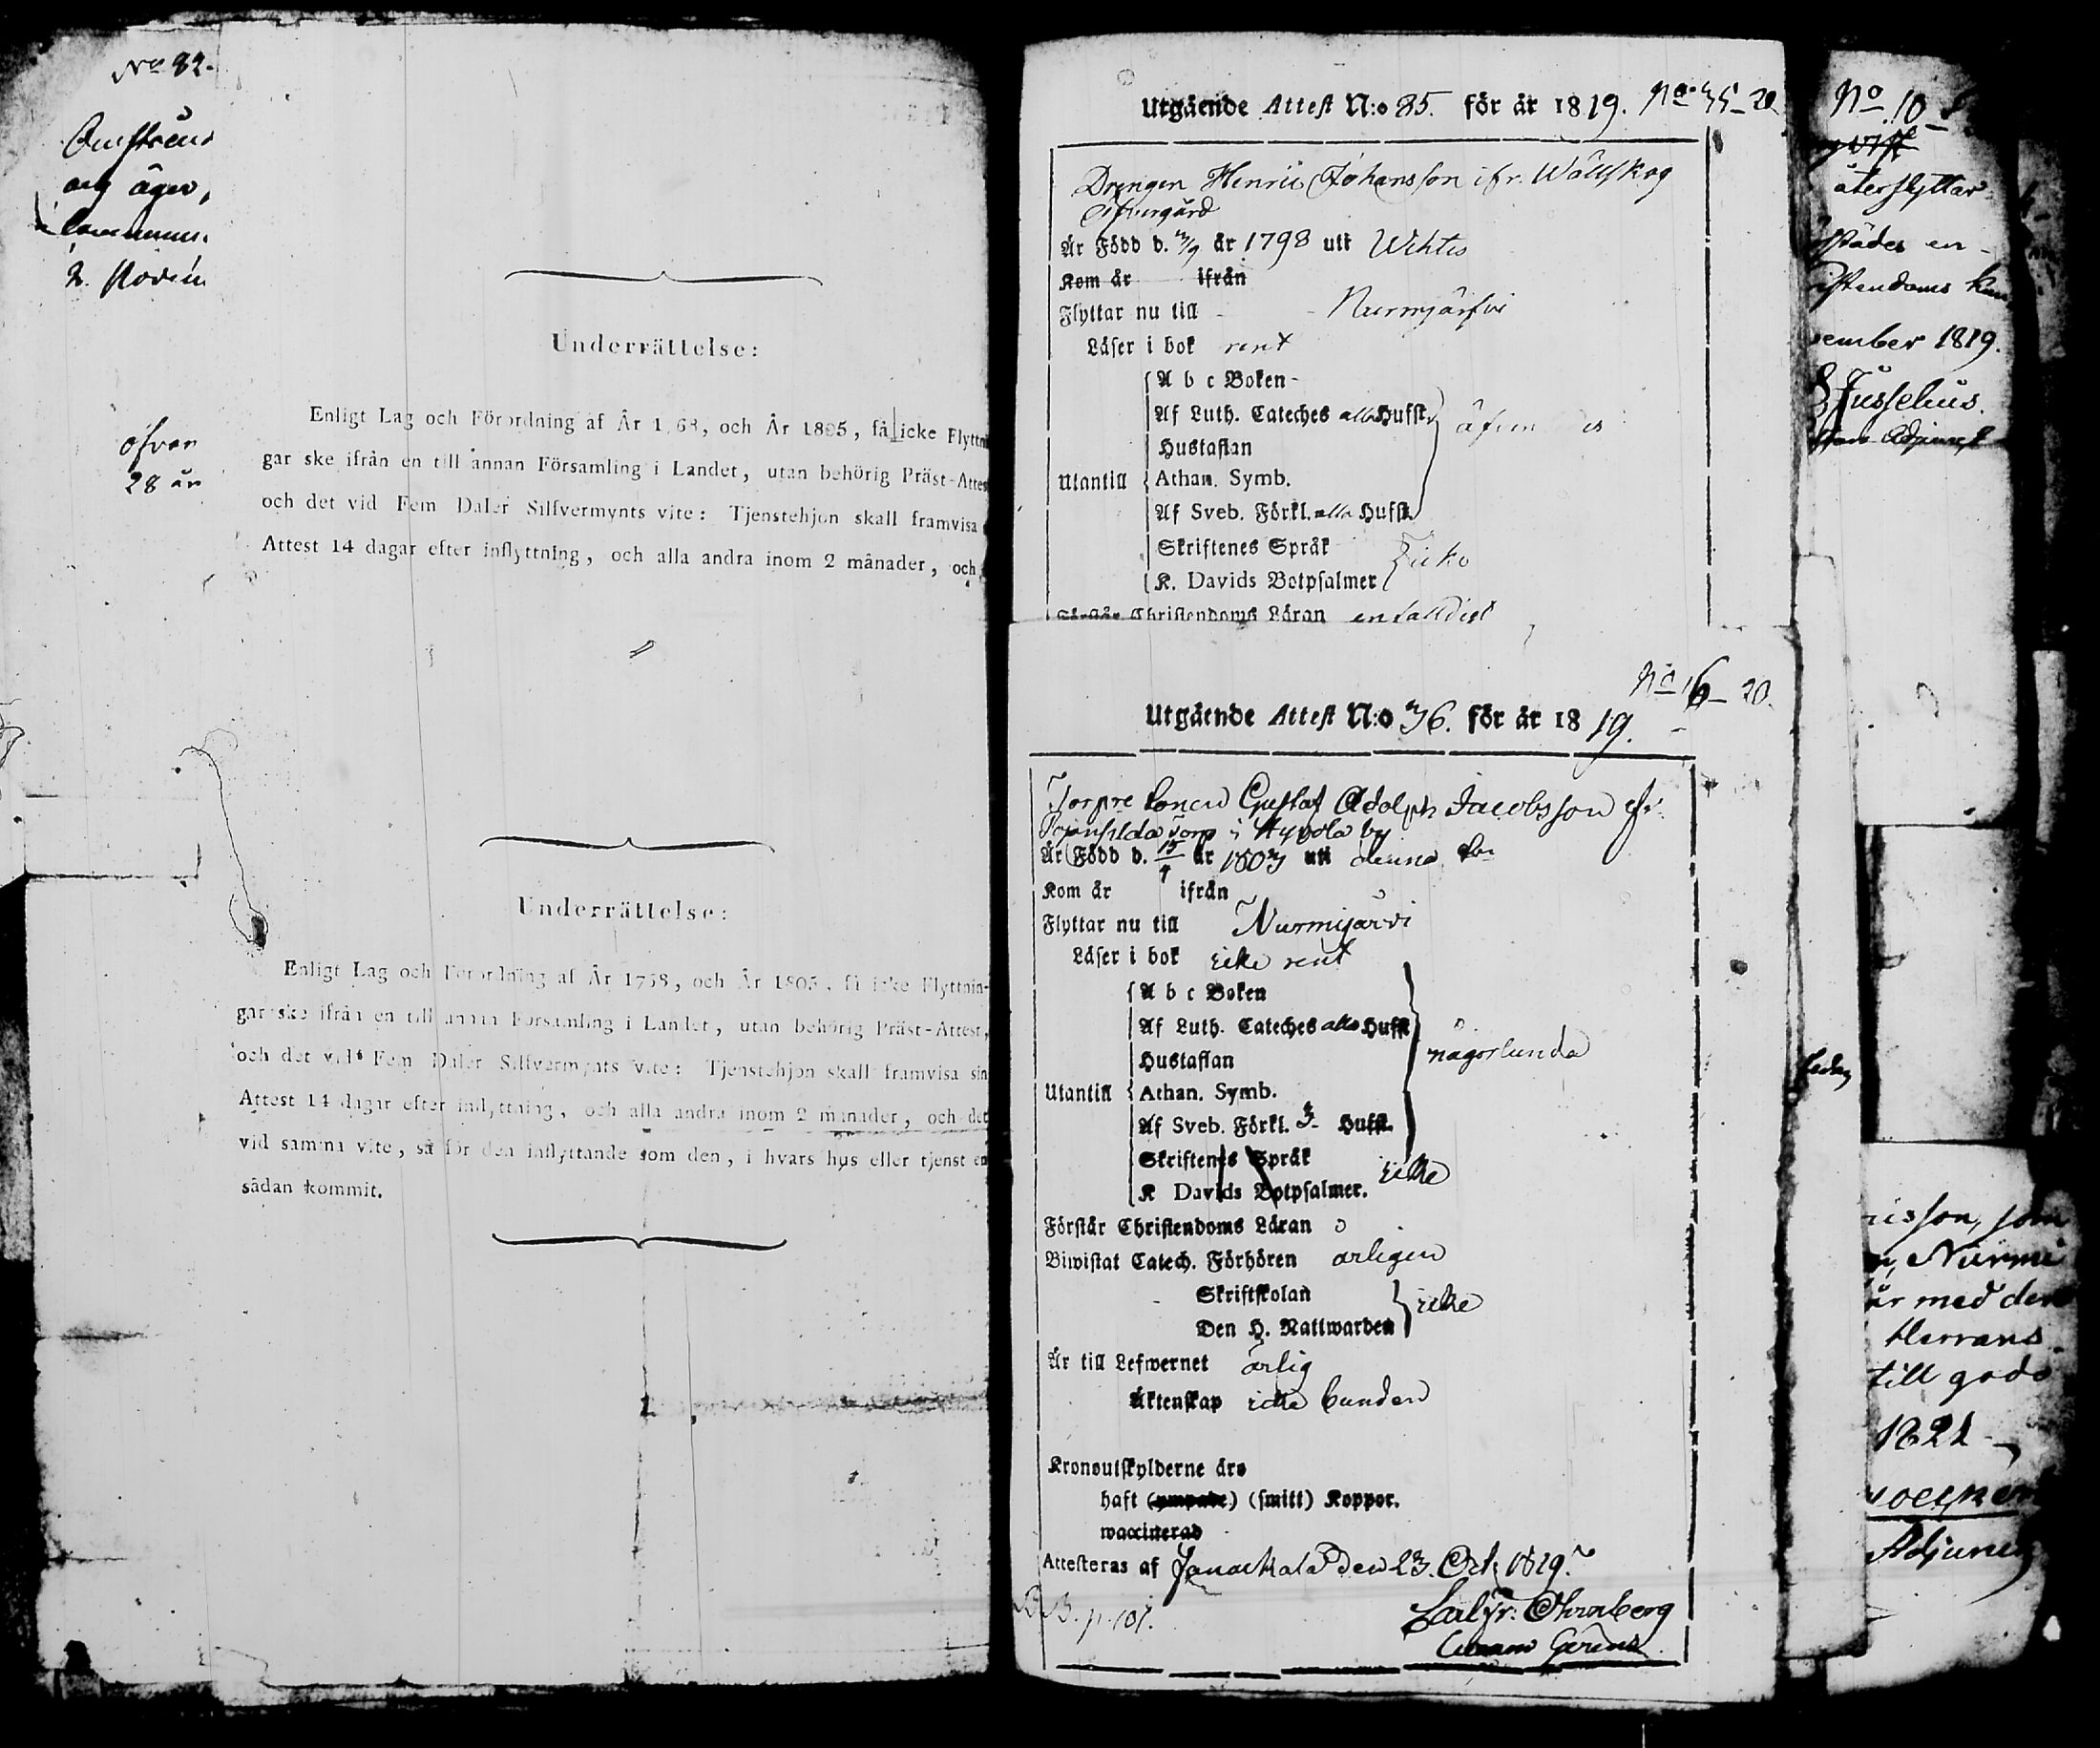 No 82.
öfver
28 år
Underrättelse:
Enligt Lag och Förordning af År 1 68, och År 1805, få icke Flyttni
gar ske ifrån en till annan Församling i Landet, utan behörig Präst-Attes
och det vid Fem Daler Silfvermynts vite: Tjenstehjon skall framvisa
Attest 14 dagar efter inflyttning, och alla andra inom 2 månader, och
Underrättelse:
Enligt Lag och Förordning af År 1768, och År 1805, få icke Flyttnin-
gar ske ifrån en till annan Församling i Landet, utan behörig Präst-Attest,
och det vid Fem Daler Silfvermynts vite: Tjenstehjon skall framvisa sin
Attest 14 dagar efter inflyttning, och alla andra inom 2 månader, och det
vid samma vite, så för den inflyttande som den, i hvars hus eller tjenst en
sådan kommit.
Utgående Attest N:o 85. för år 1819. No 35-20
Drengen Henric Johansson ifr. Wällskog
Är Född d. år 1798 uti Wihtis
Kom år ifrån
Flyttar nu till - - Nurmjärfvi
Läser i bok rent
A b c Boken -
Af Luth. Cateches alla Hufst.
Hustaflan
Utantill Athan. Symb.
Af Sveb. Förkl. alla Hufst.
Skriftenes Språk
K. Davids Botpsalmer icke
Förstår Christendoms Läran enfaldigt
No 16-20.
Utgående Attest N:o 76. för år 1819.
Torpare Sonen Gustaf Adolph Jacobsson ifr.
Torp i Hyvola by
Är Född d. 15 år 1803 uti denna
Kom år ifrån
Flyttar nu till Nurmijärvi
Läser i bok icke rent
A b c Boken
Af Luth. Cateches alla Hufst
Hustaflan någorlunda
Utantill Athan. Symb.
Af Sveb. Förkl. 3- Hufst.
Skriftenes Språk
K Davids Botpsalmer. icke
Förstår Christendoms Läran
Biwistat Catech. Förhören årligen
Skriftskolan
Den H. Nattwarden icke
Är till Lefwernet ärlig
Äktenskap icke bunden
Kronoutskylderne äro
haft (ympade) (smitt) Koppor.
waccinerad
Attesteras af Janackala den 23. Oct. 1819.
p. 101.
Carl Fr. Ohrnberg
No 10
återflyttar
städes en-
istendoms kun
vember 1819.
Jusselius.
Adjunct
risson, som
n, Nurmi
är med den
Herrans
till godo
1821
Adjunct